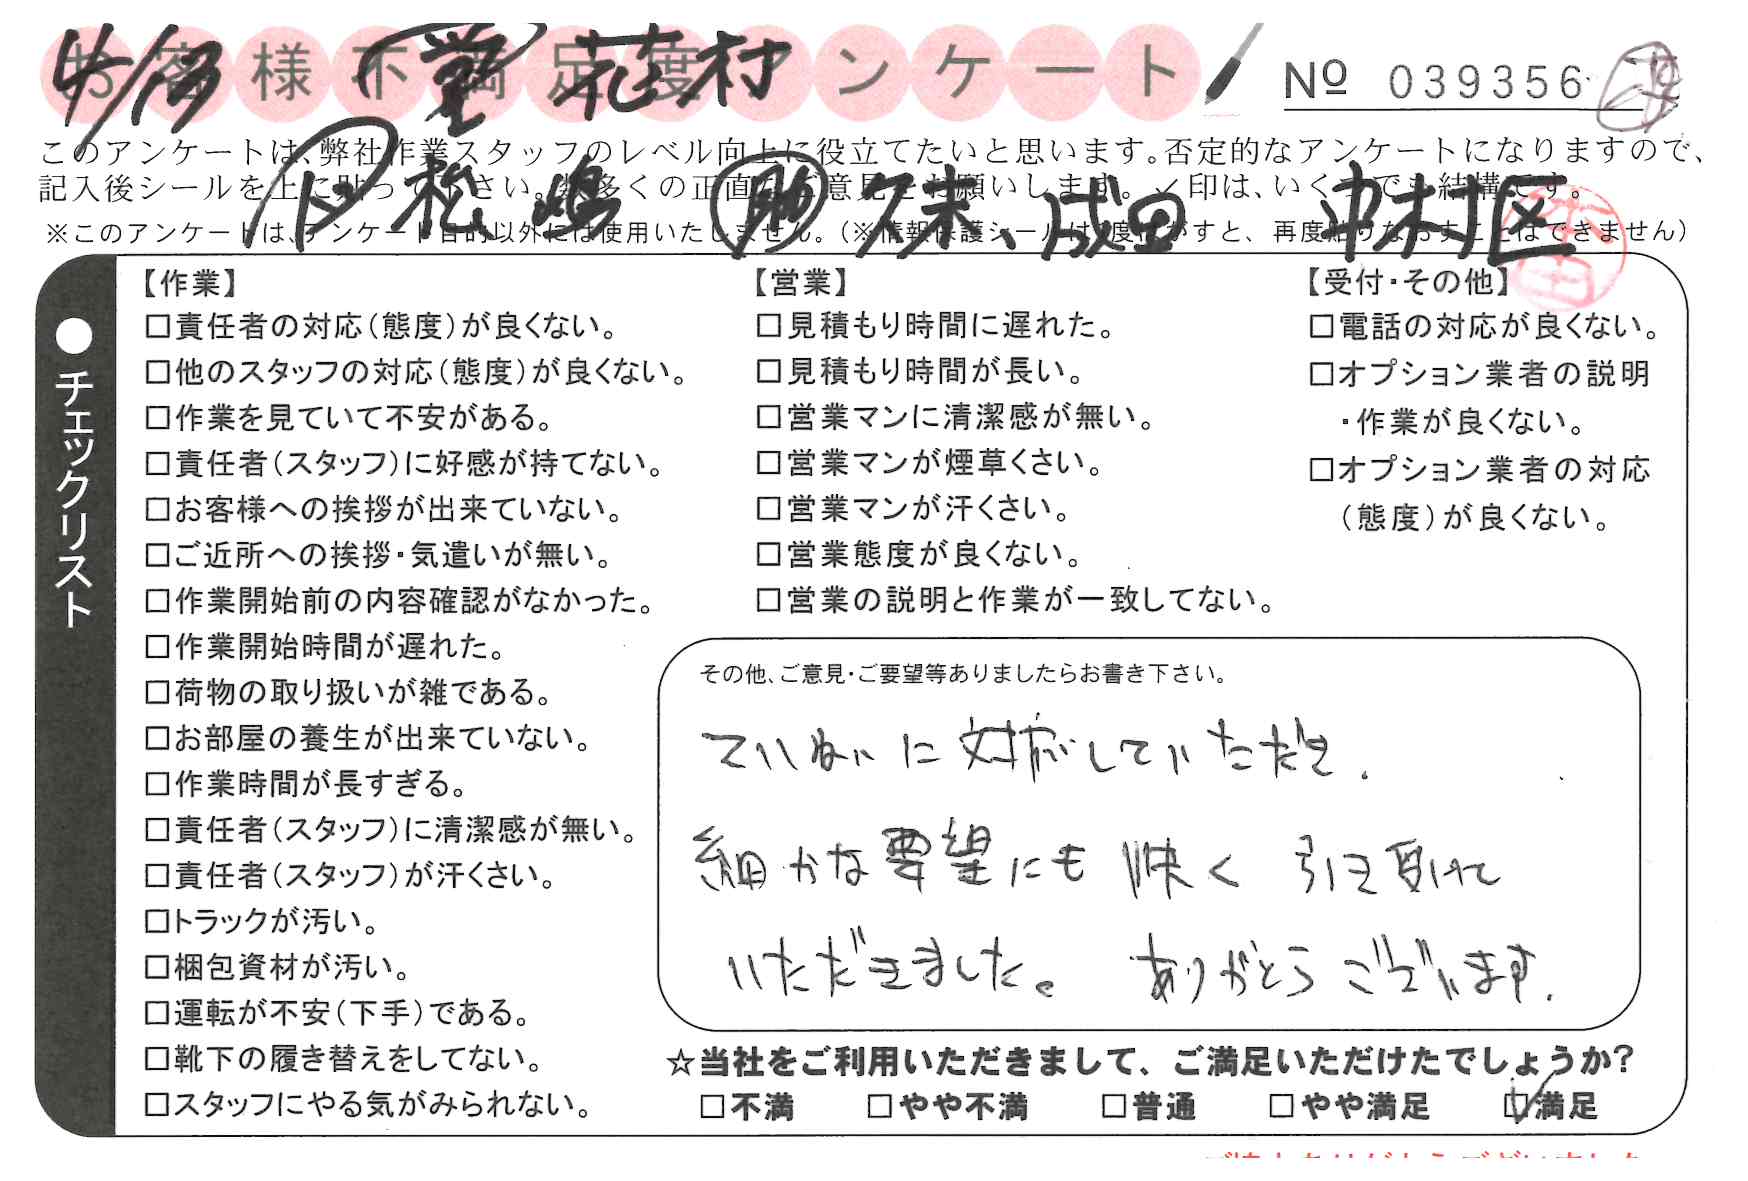 お客様不満足度アンケート
No 039356
4/13 営 花村
このアンケートは、弊社作業スタッフのレベル向上に役立てたいと思います。否定的なアンケートになりますので、
記入後シールを上に貼って下さい。数多くの正直なご意見をお願いします。✓印は、いくつでも結構です。
松嶋 助 久末、成田 中村区
※このアンケートは、アンケート目的以外には使用いたしません。(※情報保護シールは1度はがすと、再度貼りなおすことはできません)
●チェックリスト
【作業】
□責任者の対応(態度)が良くない。
□他のスタッフの対応(態度)が良くない。
□作業を見ていて不安がある。
□責任者(スタッフ)に好感が持てない。
□お客様への挨拶が出来ていない。
□ご近所への挨拶・気遣いが無い。
□作業開始前の内容確認がなかった。
□作業開始時間が遅れた。
□荷物の取り扱いが雑である。
□お部屋の養生が出来ていない。
□作業時間が長すぎる。
□責任者(スタッフ)に清潔感が無い。
□責任者(スタッフ)が汗くさい。
□トラックが汚い。
□梱包資材が汚い。
□運転が不安(下手)である。
□靴下の履き替えをしてない。
□スタッフにやる気がみられない。
【営業】
□見積もり時間に遅れた。
□見積もり時間が長い。
□営業マンに清潔感が無い。
□営業マンが煙草くさい。
□営業マンが汗くさい。
□営業態度が良くない。
□営業の説明と作業が一致してない。
【受付・その他】
□電話の対応が良くない。
□オプション業者の説明
・作業が良くない。
□オプション業者の対応
(態度)が良くない。
その他、ご意見・ご要望等ありましたらお書き下さい。
ていねいに対応していただき、
細かな要望にも快く引き受けて
いただきました。ありがとうございます。
☆当社をご利用いただきまして、ご満足いただけたでしょうか?
□不満 □やや不満 □普通 □やや満足 ☑満足